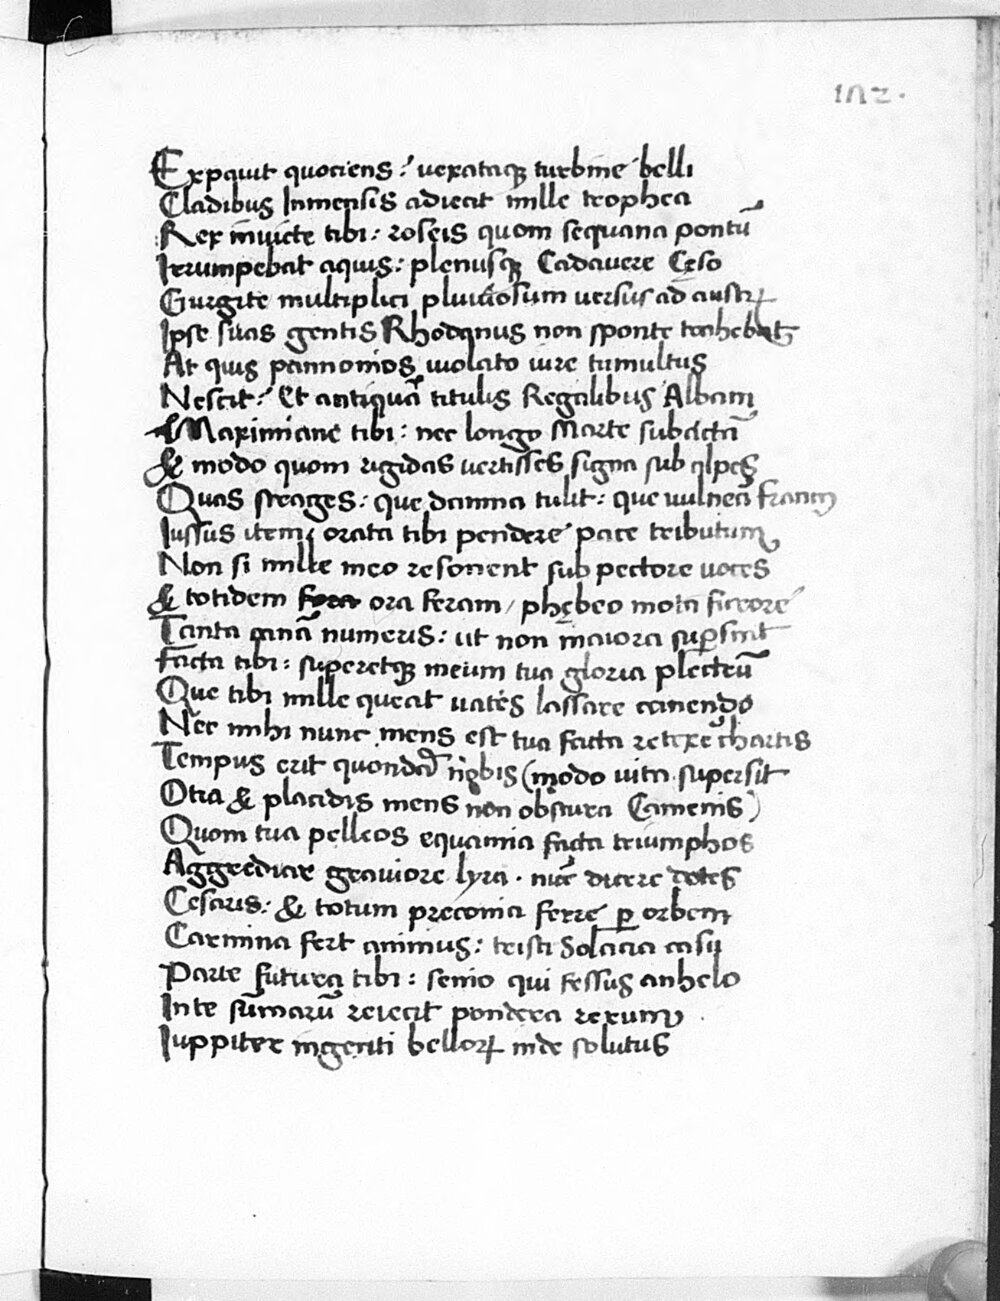 102.
Expauit quociens: uexataqꝫ turbine belli
Cladibus Inmensis adiecit mille trophea
Rex inuicte tibi: roseis quom sequana pontū
Irrumpebat aquis: plenusqꝫ Cadauere Cęso
Gurgite multiplici pluuiosum uersus ad austrꝝ
Ipse suas gentis Rhodanus non sponte trahebat
At quis pannonios uiolato iure tumultus
Nescit: Et antiquā titulis Regalibus Albam
Maximiane tibi: nec longo Marte subactā
& modo quom rigidas uertisses signa sub alpes
Quas strages: que damna tulit: que uulnera francꝰ
Iussus item, orata tibi pendere pace tributum
Non si mille meo resonent sub pectore uoces
& totidem ora feram, phębeo mota furore
Tanta canā numeris: ut non maiora supersint
Facta tibi: superetqꝫ meum tua gloria plectrū
Que tibi mille queat uates lassare canendo
Nec mihi nunc mens est tua facta retexe chartis
Tempus erit quondā nobis (modo uita supersit
Otia & placidis mens non obscura Camenis)
Quom tua pelleos equantia facta triumphos
Aggrediar grauiore lyra. dicere dotes
Cesaris: & totum preconia ferre ꝑ orbem
Carmina fert animus: tristi Solacia casu
Parte futura tibi: senio qui fessus anhelo
Inte sūmarū reiecit pondera rerum.
Iuppiter ingenti bellorꝝ inde solutus